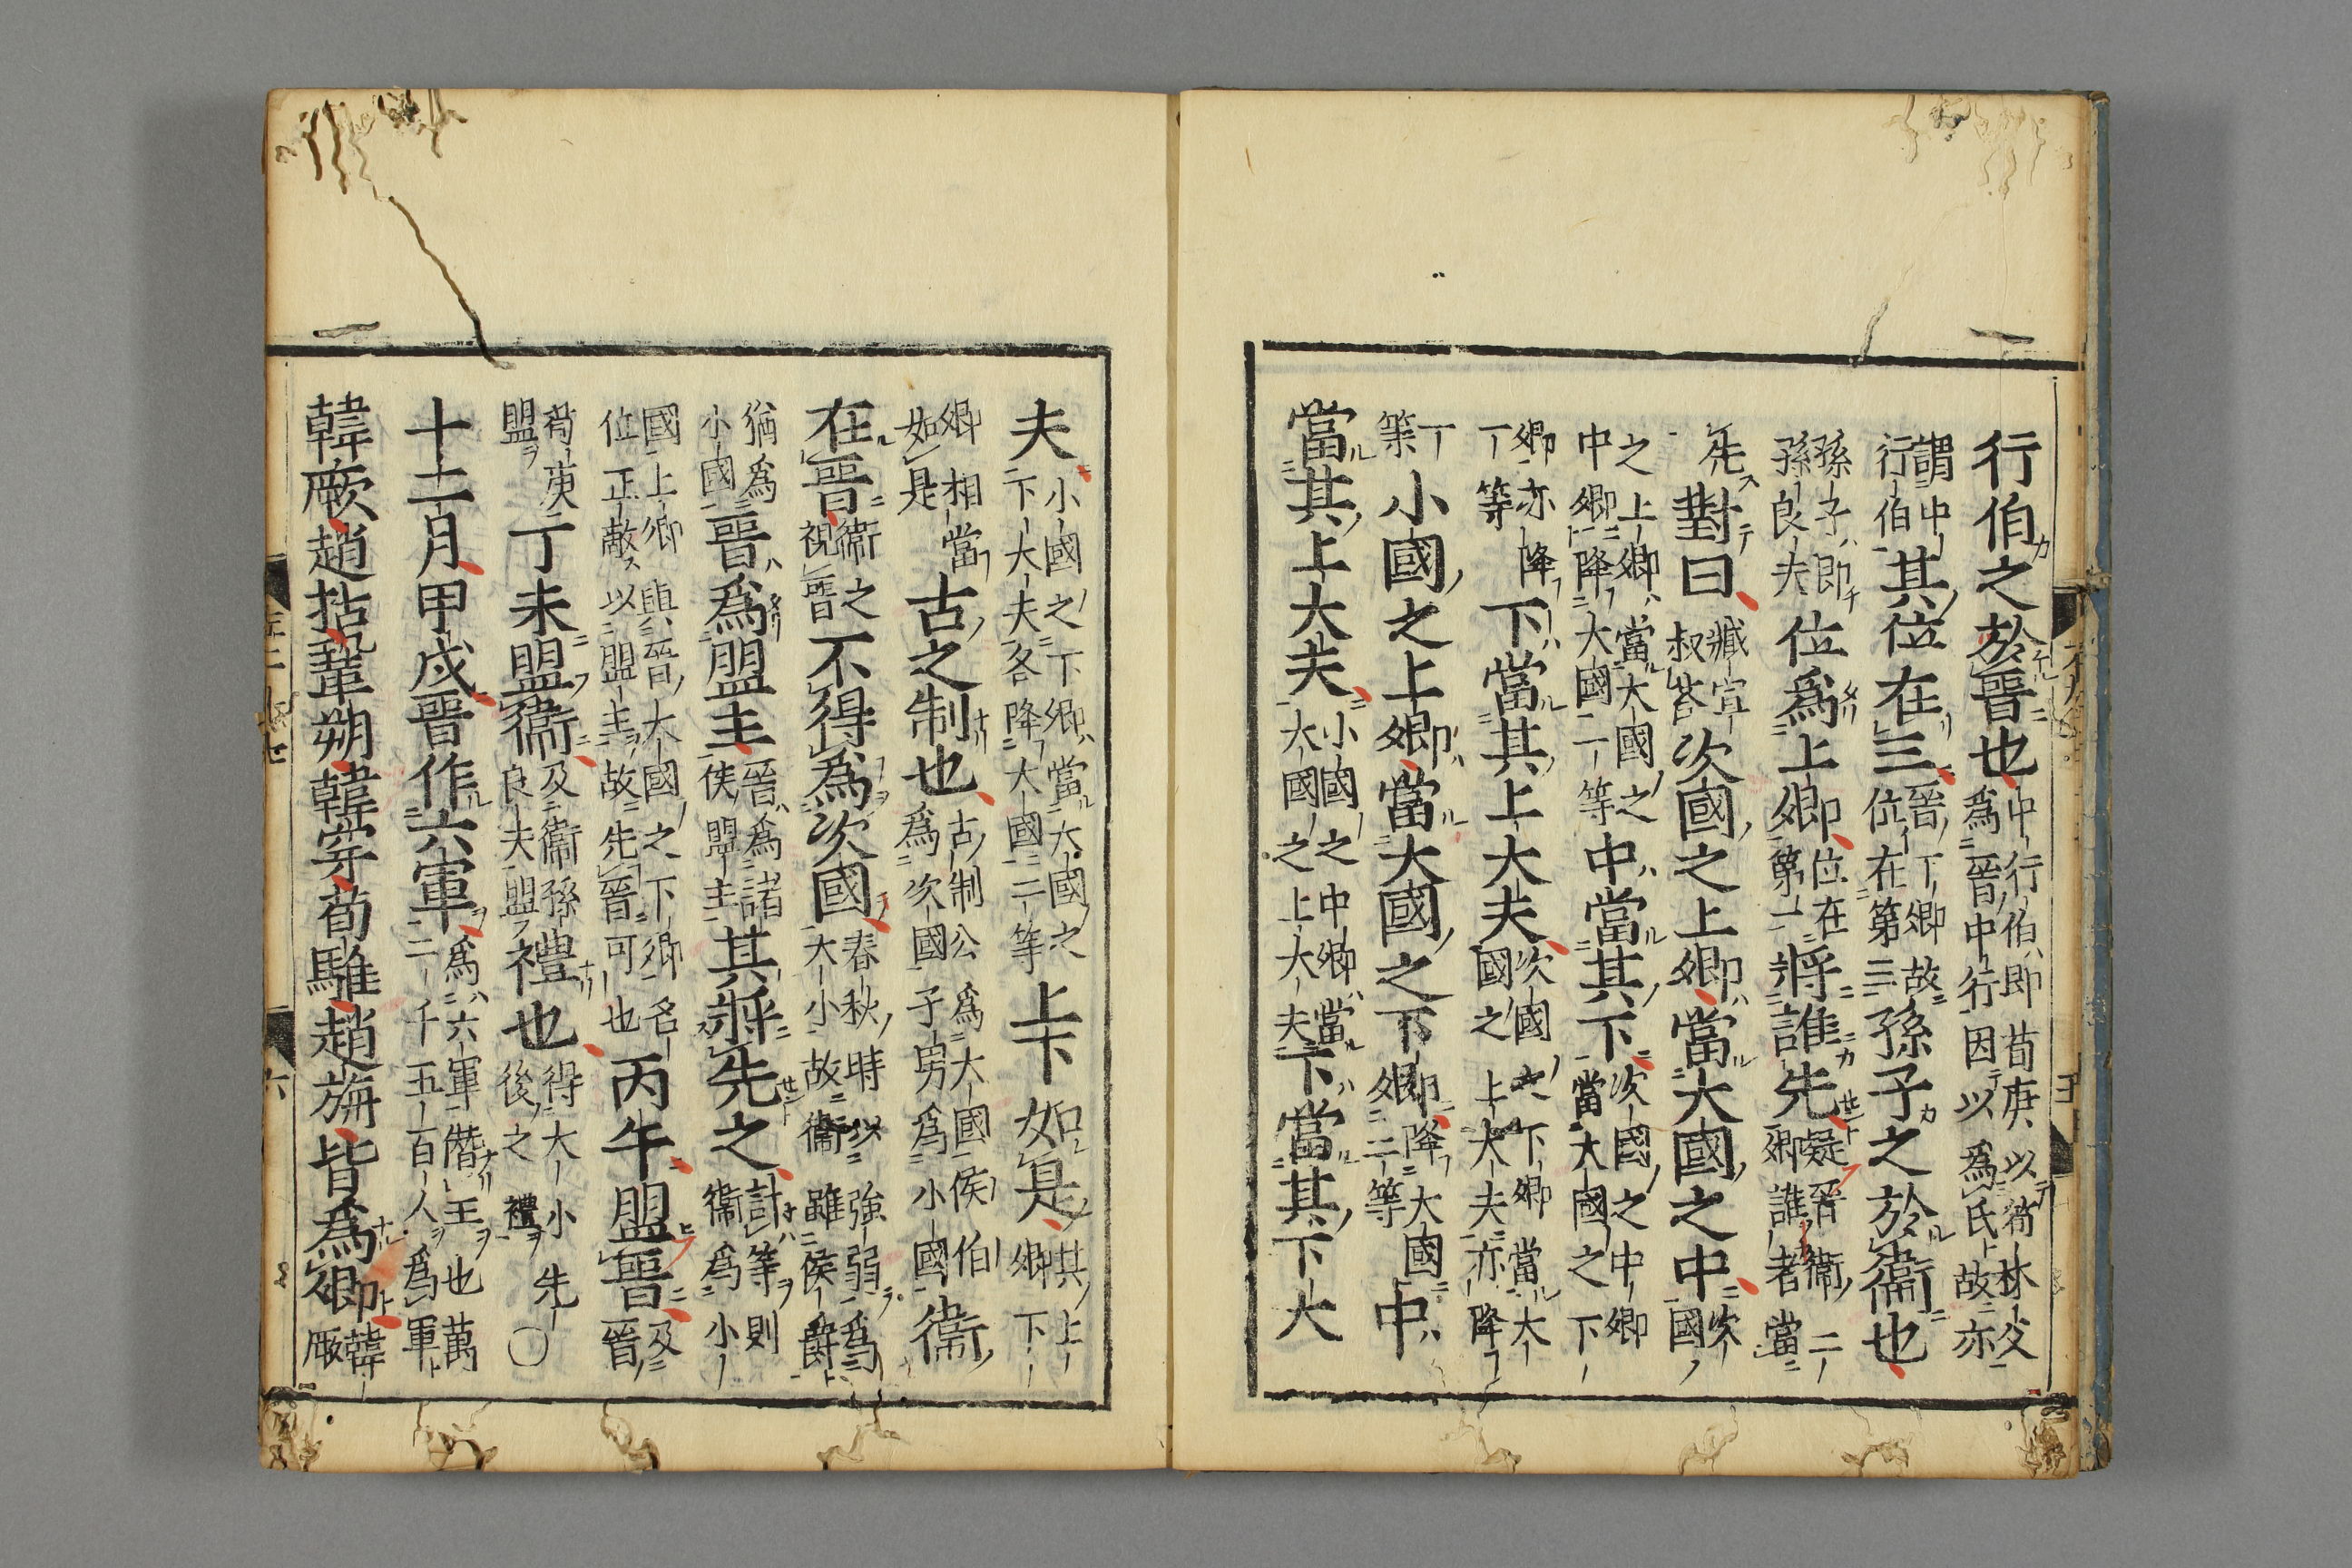 行伯之於晉也中行伯即荀庚以荀林父爲晉中行因以爲氏故亦
謂中行伯其位在三晉下卿故位在第三孫子之於衞也
孫子即孫良夫位爲上卿位在第一將誰先疑晉衞二卿誰者當
先對曰臧宣叔荅次國之上卿當大國之中次國
之上卿當大國之中卿降大國一等中當其下次國之中卿當大國之下
卿亦降一等下當其上大夫次國之下卿當大國之上大夫亦降
一等小國之上卿當大國之下卿降大國二等中
當其上大夫小國之中卿當大國之上大夫下當其下大
夫小國之下卿當大國之下大夫各降大國二等上下如是其上卿下
卿相當如是古之制也古制公爲大國侯伯爲次國子男爲小國衞
在晉衞之視晉不得爲次國春秋時以強弱爲大小故衞雖侯爵
猶爲小國晉爲盟主晉爲諸侯盟主其將先之計等則衞爲小
國上卿與晉大國之下卿名位正敵以盟主故先晉可也丙午盟晉及晉
荀庚盟丁未盟衞及衞孫良夫盟禮也得大小先後之禮〇
十二月甲戌晉作六軍爲六軍僭王也萬二千五百人爲軍
韓厥趙括鞏朔韓穿荀騅趙旃皆爲卿韓厥
六